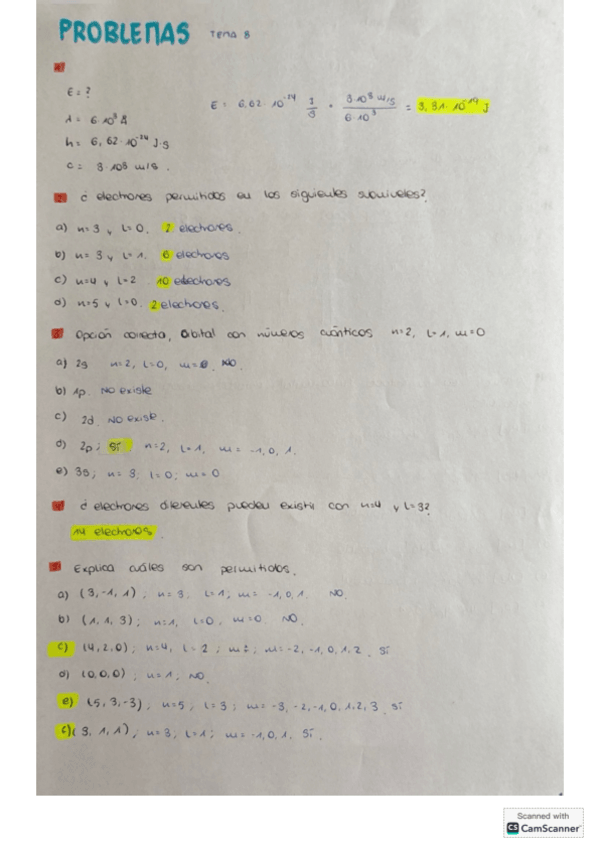 PROBLEMAS TEMA 8
1
E = ?
E = 6,62·10^-24 J/s · 3·10^8 m/s / 6·10^3 = 3,31·10^-19 J
λ = 6·10^3 Å
h = 6,62·10^-24 J·s
c = 3·10^8 m/s.
2 ¿ electrones permitidos en los siguientes subniveles?
a) n=3 y l=0. 2 electrones.
b) n=3 y l=1. 6 electrones
c) n=4 y l=2 10 electrones
d) n=5 y l=0. 2 electrones.
3 Opción correcta, orbital con números cuánticos n=2, l=1, m=0
a) 2s n=2, l=0, m=0. NO.
b) 1p. NO existe
c) 2d. NO existe.
d) 2p; Sí n=2, l=1, m= -1, 0, 1.
e) 3s; n=3; l=0; m=0
4 ¿ electrones diferentes pueden existir con n=4 y l=3?
14 electrones.
5 Explica cuáles son permitidos.
a) (3,-1,1); n=3, l=1; m= -1, 0, 1. NO.
b) (1,1,3); n=1, l=0, m=0. NO.
c) (4,2,0); n=4, l=2; m=; m=-2, -1, 0, 1, 2. Sí
d) (0,0,0); n=1; NO.
e) (5,3,-3); n=5; l=3; m= -3, -2, -1, 0, 1, 2, 3. Sí
f) (3,1,1); n=3; l=1; m= -1, 0, 1. Sí.
Scanned with
CS CamScanner